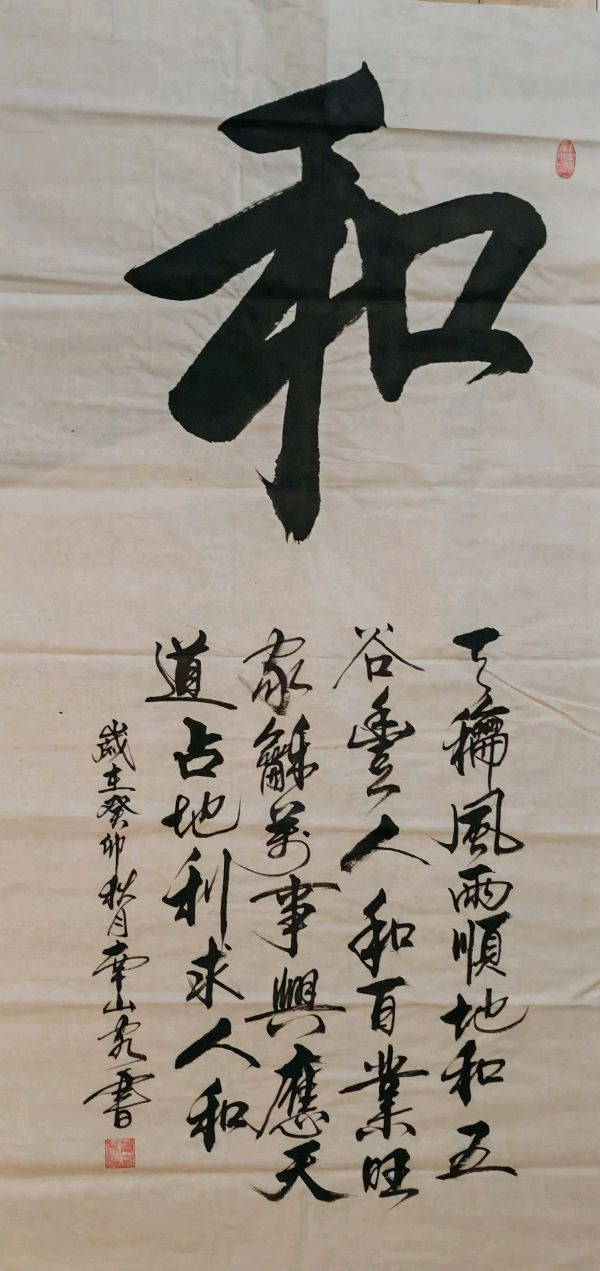 和
天龢風雨順地和五
谷豐人和百業旺
家龢萬事興應天
道占地利求人和
歲在癸卯秋月南山客書